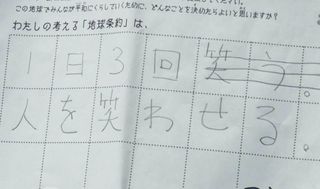 この地球でみんなが平和にくらしていくために、どんなことを決めたらよいと思いますか?
わたしの考える「地球条約」は、
1日3回笑う。
人を笑わせる。